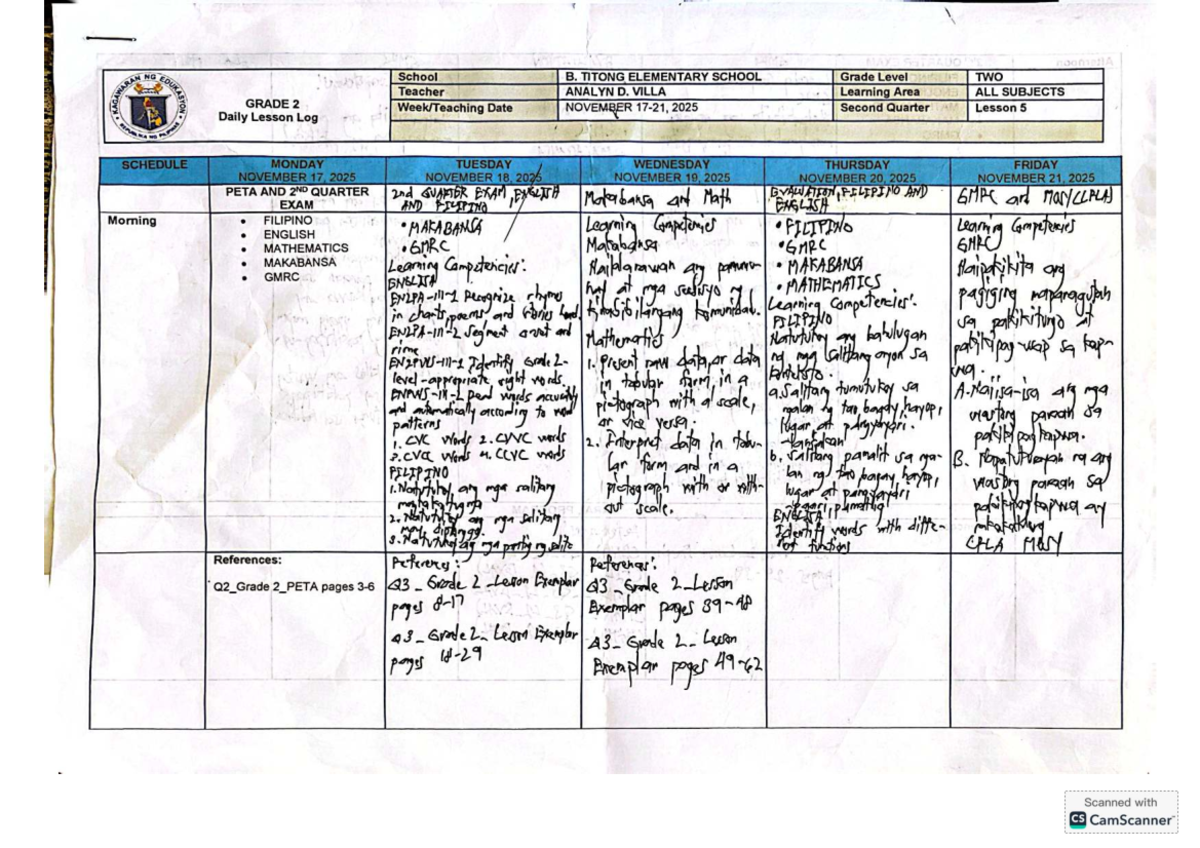 GRADE 2
Daily Lesson Log
School B. TITONG ELEMENTARY SCHOOL Grade Level TWO
Teacher ANALYN D. VILLA Learning Area ALL SUBJECTS
Week/Teaching Date NOVEMBER 17-21, 2025 Second Quarter Lesson 5
SCHEDULE
MONDAY
NOVEMBER 17, 2025
TUESDAY
NOVEMBER 18, 2025
WEDNESDAY
NOVEMBER 19, 2025
THURSDAY
NOVEMBER 20, 2025
FRIDAY
NOVEMBER 21, 2025
Morning
PETA AND 2ND QUARTER
EXAM
• FILIPINO
• ENGLISH
• MATHEMATICS
• MAKABANSA
• GMRC
References:
Q2_Grade 2_PETA pages 3-6
2nd QUARTER EXAM, ENGLISH
AND FILIPINO
• MAKABANSA
• GMRC
Learning Competencies:
ENGLISH
EN2PA-III-1 Recognize rhymes
in chants, poems and stories heard.
EN2PA-III-2 Segment onset and
rime
Identify Grade 2-
level-appropriate words
Read words accurately
and automatically according to word
patterns
1. CVC words 2. CVVC words
3. CVCC words 4. CCVC words
FILIPINO
1. Natutukoy ang mga salitang
2. Natutukoy ang mga salitang
may diptonggo.
3. ang mga pantig ng salita
References:
Q3_Grade 2_Lesson Exemplar
pages 8-17
Q3_Grade 2_Lesson Exemplar
pages 18-29
Makabansa and Math
Learning Competencies
Makabansa
Nailalarawan ang pamumu-
hay at mga serbisyo ng
kinabibilangang komunidad.
Mathematics
1. Present raw data, or data
in tabular form, in a
pictograph with a scale,
or vice versa.
2. Interpret data in tabu-
lar form and in a
pictograph with or with-
out scale.
References:
Q3_Grade 2_Lesson
Exemplar pages 39-48
Q3_Grade 2_Lesson
Exemplar pages 49-62
EVALUATION, FILIPINO AND
ENGLISH
• FILIPINO
• GMRC
• MAKABANSA
• MATHEMATICS
Learning Competencies:
FILIPINO
Natutukoy ang kahulugan
ng mga salitang ayon sa
konteksto
a. Salitang tumutukoy sa
ngalan ng tao bagay, hayop,
lugar at pangyayari.
b. Salitang pamalit sa nga-
lan ng tao bagay hayop,
lugar at pangyayari
ENGLISH
Identify words with differe-
nt functions
GMRC and
Learning Competencies
GMRC
Naipakikita ang
pagiging mapanagutan
sa pakikitungo at
pakikipag-usap sa kap-
wa.
A. Naiisa-isa ang mga
wastong paraan sa
pakikipagkapwa.
B. Napatutunayan na ang
wastong paraan sa
pakikipagkapwa ay
Scanned with
CS CamScanner